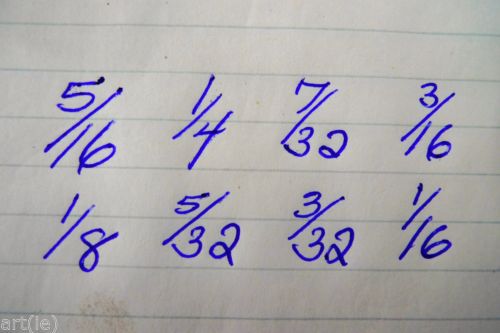 5/16 1/4 7/32 3/16
1/8 5/32 3/32 1/16
art(ie)